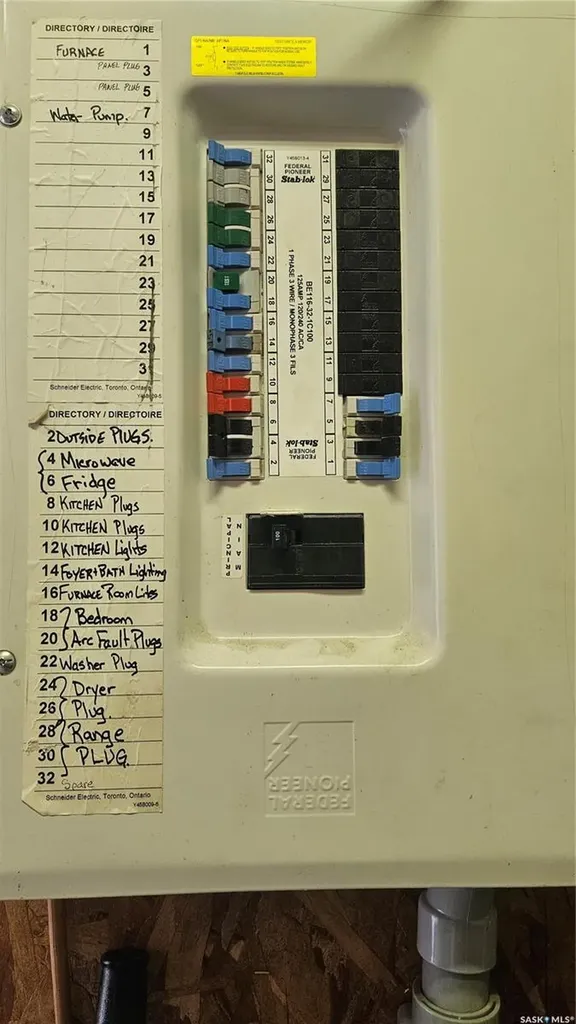 DIRECTORY / DIRECTOIRE
FURNACE 1
PANEL PLUG 3
PANEL PLUG 5
Water Pump. 7
9
11
13
15
17
19
21
23
25
27
29
31
Schneider Electric, Toronto, Ontario
DIRECTORY / DIRECTOIRE
2 OUTSIDE PLUGS.
4 Microwave
6 Fridge
8 KITCHEN Plugs
10 KITCHEN Plugs
12 KITCHEN Lights
14 FOYER + BATH Lighting
16 FURNACE ROOM Lites
18 Bedroom
20 Arc Fault Plugs
22 Washer Plug
24 Dryer
26 Plug.
28 Range
30 PLUG.
32 Spare
Schneider Electric, Toronto, Ontario
Y46B009-5
32 30 28 26 24 22 20 18 16 14 12 10 8 6 4 2
FEDERAL
PIONEER
Stab-lok
BE116-32-1C100
125AMP 120/240 AC/CA
1 PHASE 3 WIRE / MONOPHASE 3 FILS
FEDERAL
PIONEER
Stab-lok
31 29 27 25 23 21 19 17 15 13 11 9 7 5 3 1
MAIN
PRINCIPAL
100
FEDERAL
PIONEER
SASK MLS®